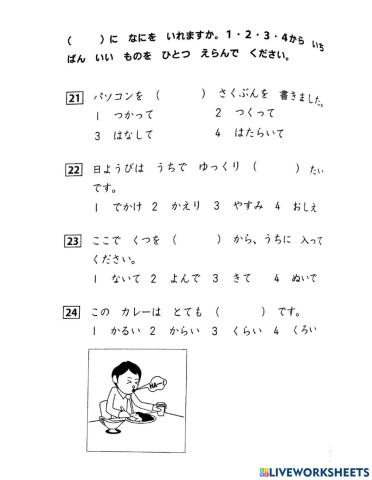 （　　　）に　なにを　いれますか。1・2・3・4から　いち
ばん　いい　ものを　ひとつ　えらんで　ください。
21　パソコンを　（　　　　）　さくぶんを　書きました。
1　つかって　　　　2　つくって
3　はなして　　　　4　はたらいて
22　日ようびは　うちで　ゆっくり　（　　　　）　たい
です。
1　でかけ　2　かえり　3　やすみ　4　おしえ
23　ここで　くつを　（　　　　）　から、うちに　入って
ください。
1　ないて　2　よんで　3　きて　4　ぬいで
24　この　カレーは　とても　（　　　　）　です。
1　かるい　2　からい　3　くらい　4　くろい
LIVEWORKSHEETS